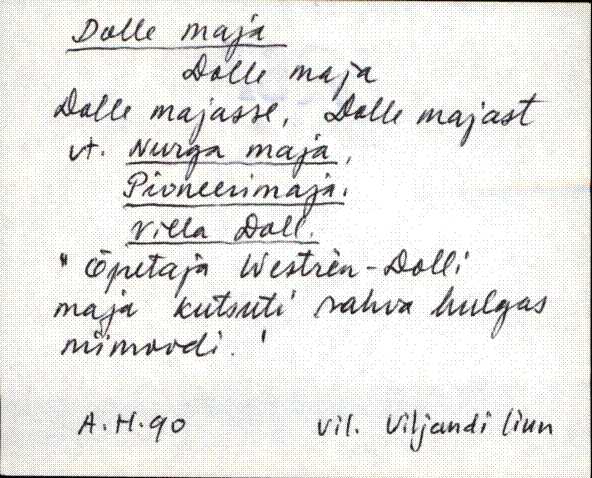 Dolle maja
Dolle maja
Dolle majasse, Dolle majast
vt. Nurga maja,
Pioneerimaja.
Villa Doll.
" Õpetaja Westrèn-Dolli
maja kutsuti rahva hulgas
niimoodi. '
A.H.90 Vil. Viljandi linn